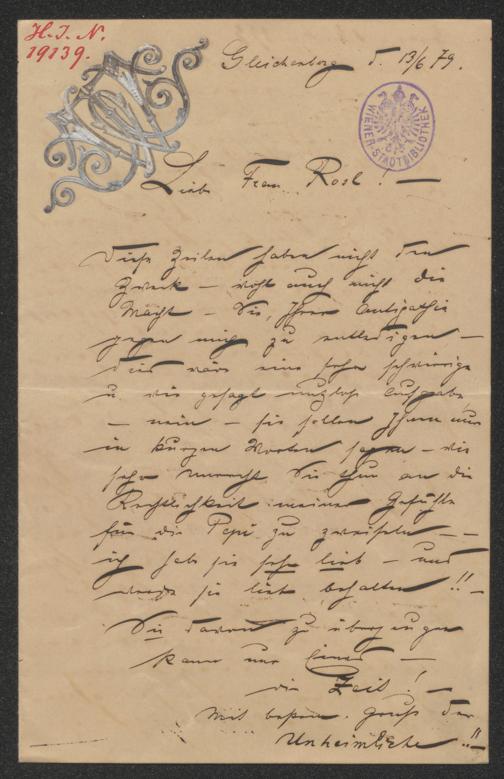 H. I. N.
19139.
Gleichenberg d. 13/6 79.
WIENER STADTBIBLIOTHEK
Liebe Frau Rosl! —
Diese Zeilen haben nicht den
Zweck – wohl auch nicht die
Macht – Sie, Ihrer Antipathie
gegen mich zu entledigen –
dies wäre eine sehr schwierige
u. wie gesagt nutzlose Aufgabe
– nein – sie sollen Ihnen nur
in kurzen Worten sagen – wie
sehr unrecht Sie thun an die
Rechtlichkeit meiner Gefühle
für die Pepi zu zweifeln – –
ich hab sie sehr lieb – und
werde sie lieb behalten!! –
Sie davon zu überzeugen
kann nur Eines —
die Zeit! –
Mit bestem Gruß der
Unheimliche!!